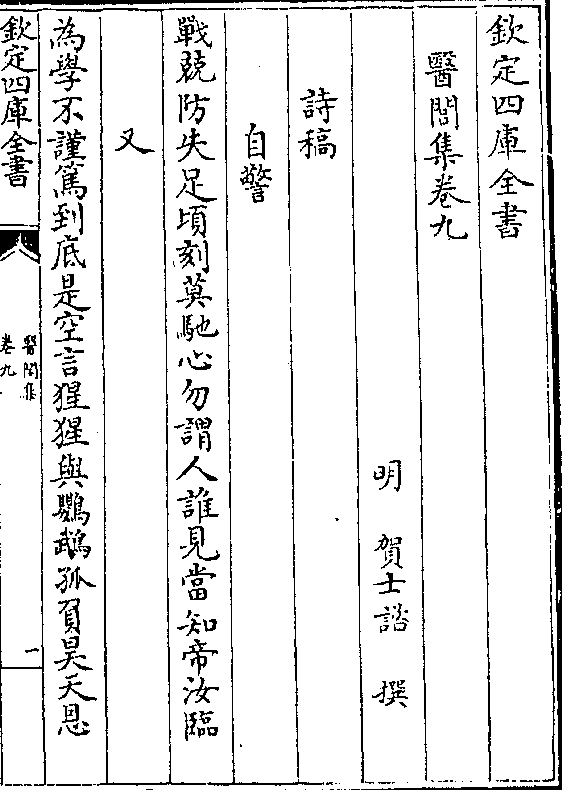 欽定四庫全書
醫閭集卷九
明 賀士諮 撰
詩稿
自警
戰兢防失足頃刻莫馳心勿謂人誰見當知帝汝臨
又
為學不謹篤到底是空言猩猩與鸚鵡孤負昊天恩
欽定四庫全書
醫閭集
卷九
一